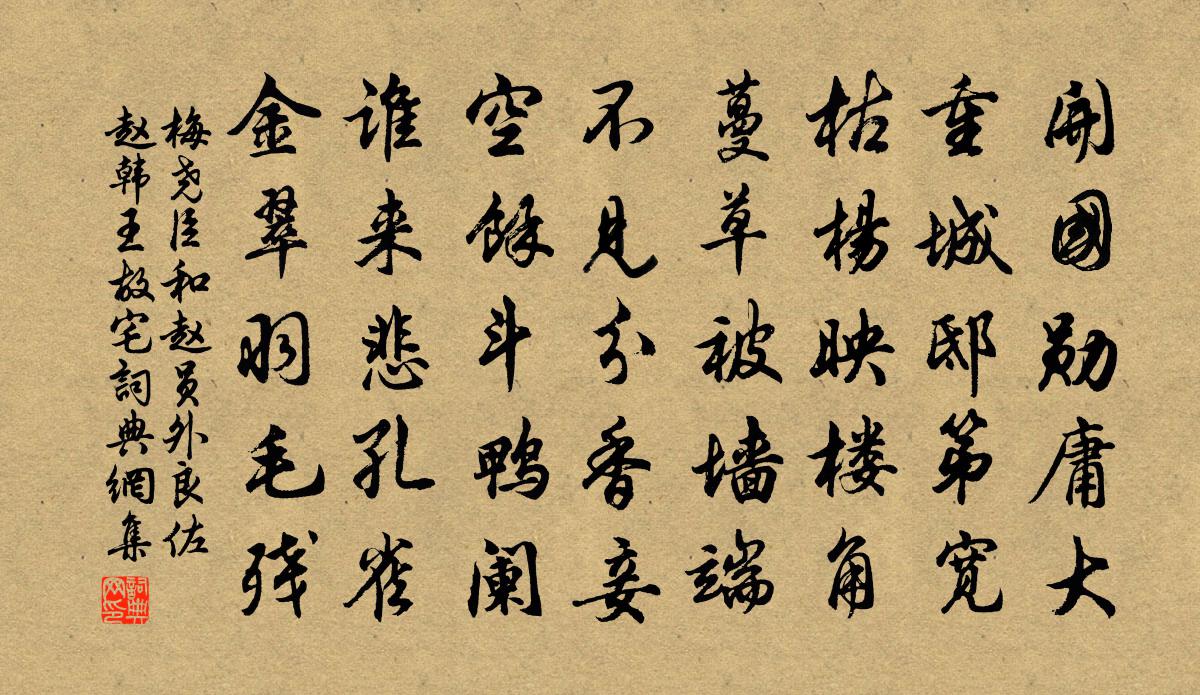 開國勋庸大
重城邸第宽
枯楊映楼角
蔓草被墙端
不見分香妾
空餘斗鸭阑
谁来悲孔雀
金翠羽毛残
梅尧臣和赵员外良佐
赵韩王故宅詞典網集
詞典网印